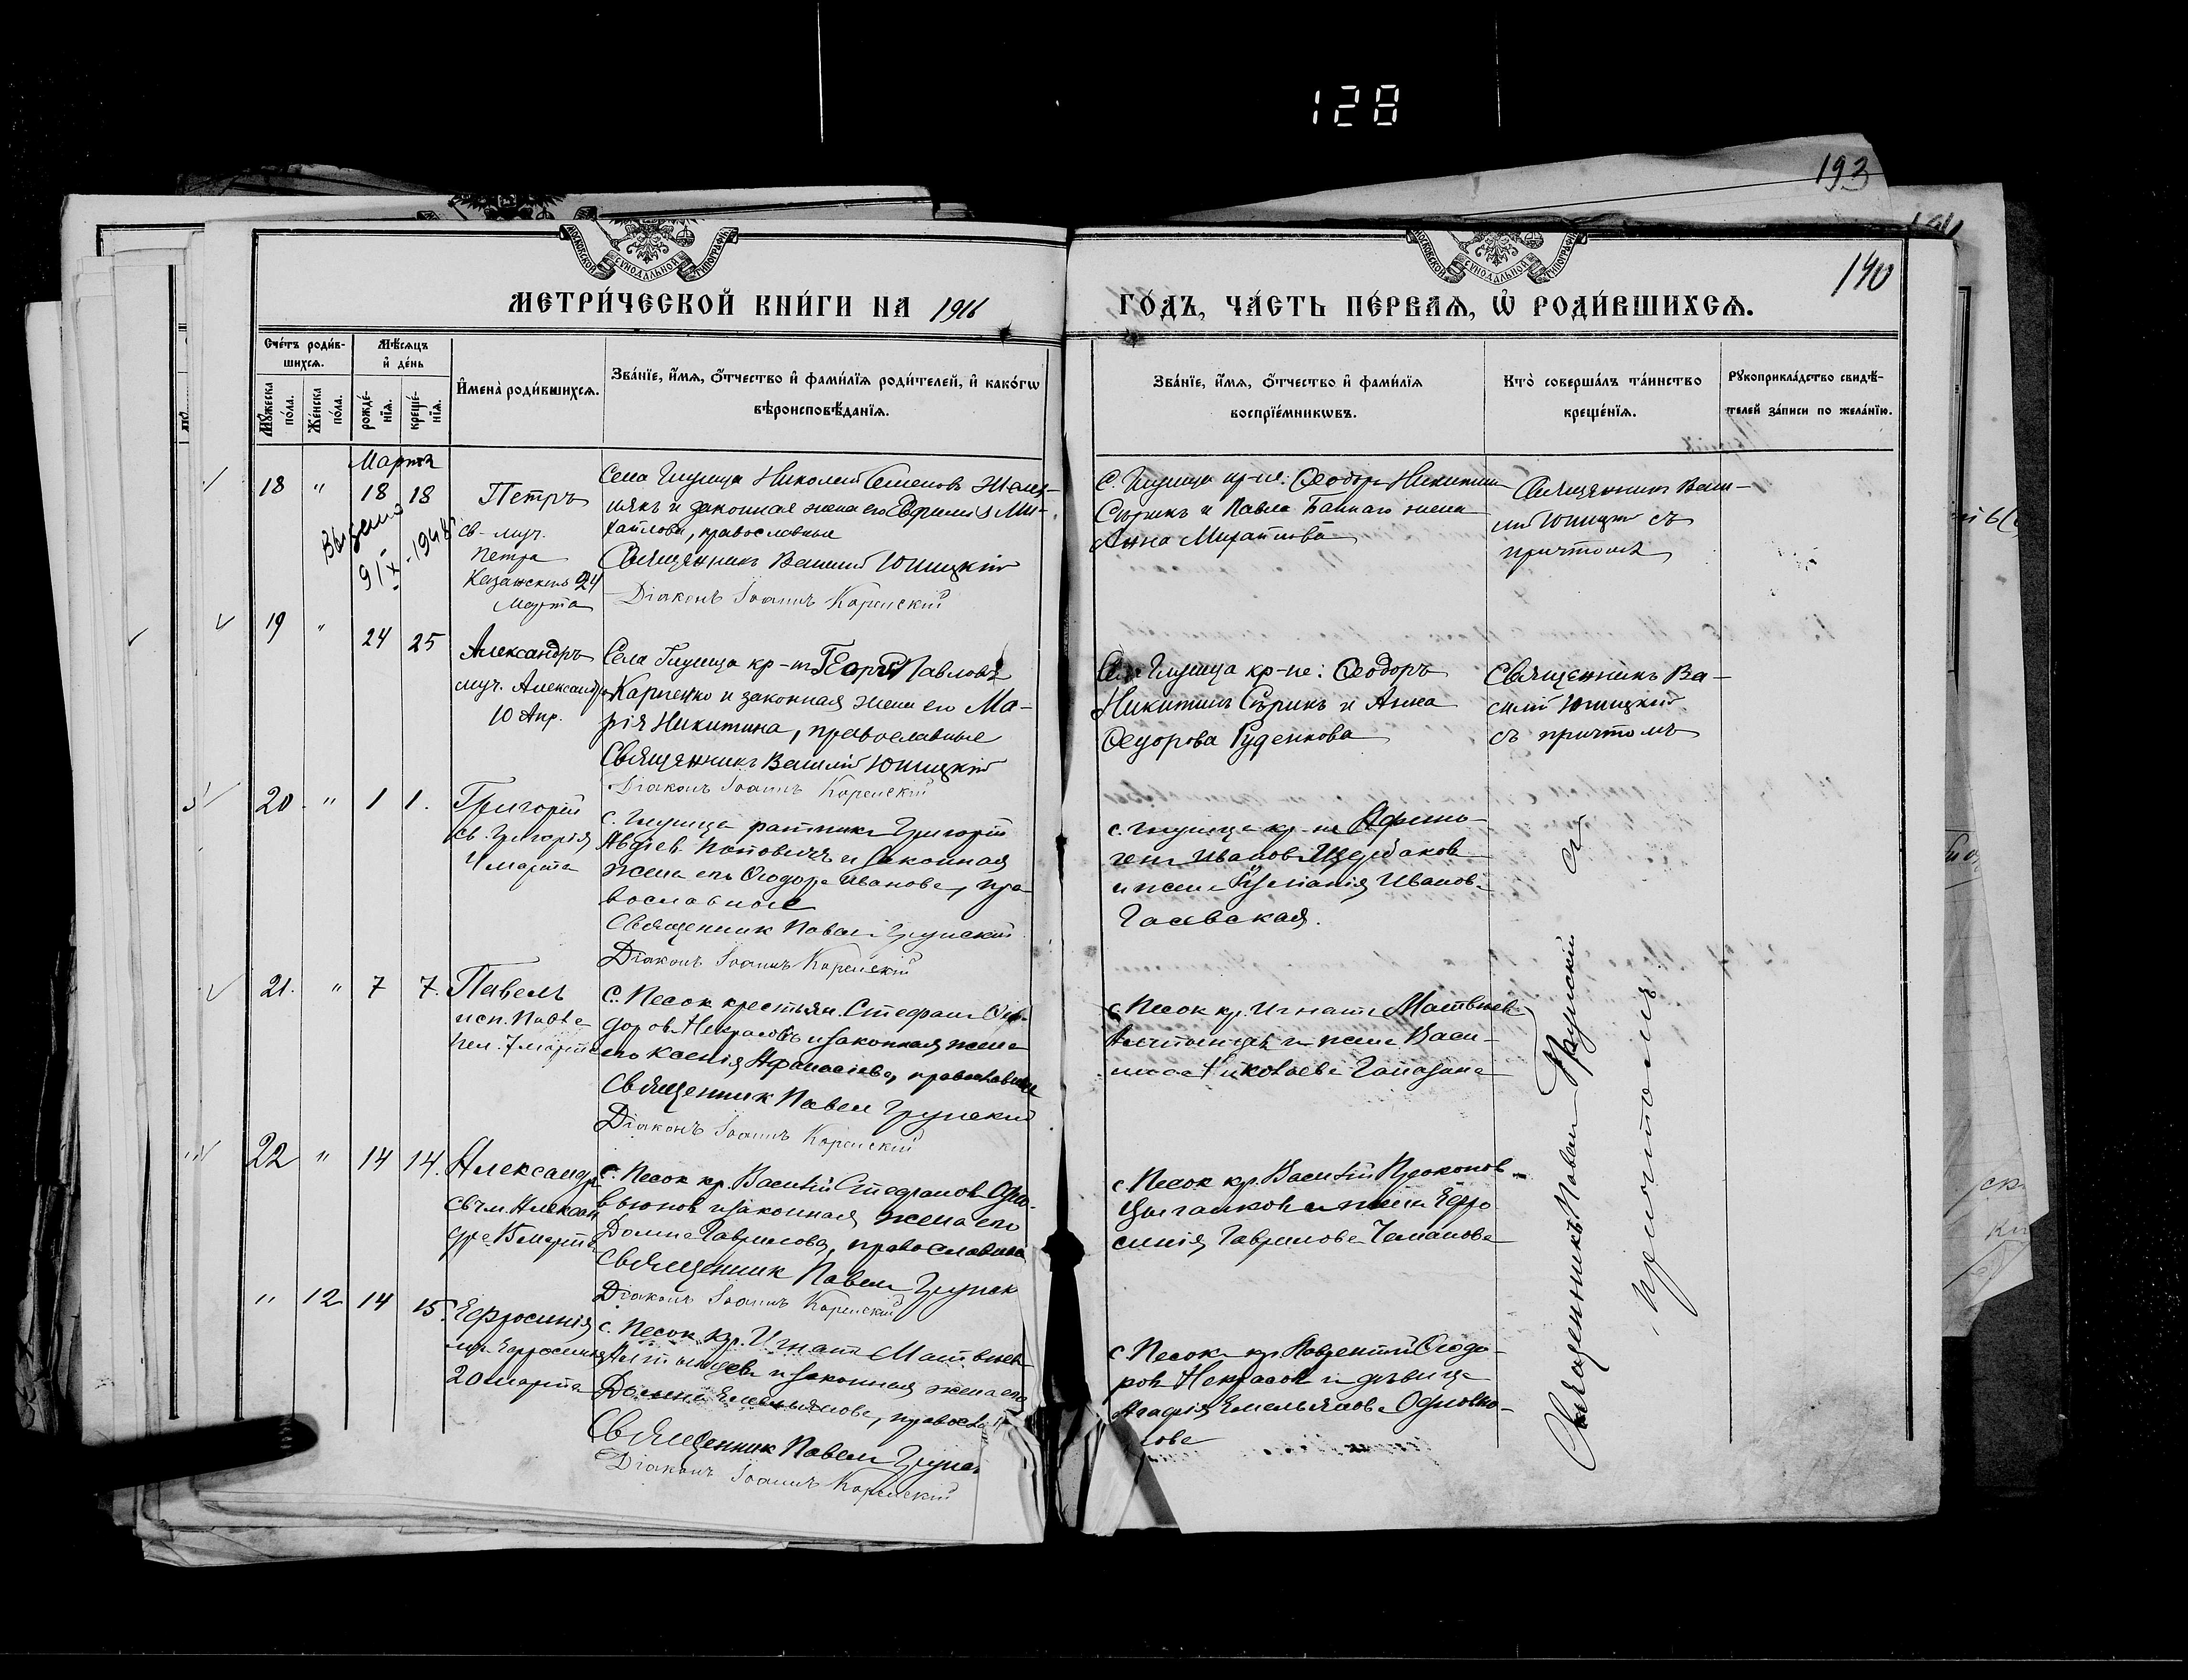 128
193
140
МЕТРИ́ЧЕСКОЙ КНИ́ГИ НА 1916
ГО́ДЪ, ЧА́СТЬ ПЕ́РВАѦ, Ѡ҆ РОДИ́ВШИХСѦ.
Сче́тъ роди́в-
шихсѧ.
Мꙋ́жеска по́ла.
Же́нска по́ла.
Мѣ́сѧцъ
и҆ де́нь
рожде́-
нїѧ.
креще́-
нїѧ.
И҆мена̀ роди́вшихсѧ.
Зва́нїе, и҆́мѧ, ѻ҆́тчество и҆ фами́лїѧ роди́телей, и҆ како́гѡ
вѣроисповѣ́данїѧ.
Зва́нїе, и҆́мѧ, ѻ҆́тчество и҆ фами́лїѧ
воспрїе́мникѡвъ.
Кто̀ соверша́лъ та́инство
креще́нїѧ.
Рꙋкоприкла́дство свидѣ́-
телей за́писи по жела́нїю.
Марта
18 " 18 18
Петръ
св. муч.
Петра
Казанскаго 24
Марта
9/X 1948
Села Глушца Николай Семеновъ
и законная жена его Евфимія Ми-
хаилова, православные
Священникъ Василій Юшицкій
Діаконъ Іоаннъ Коренскій
С. Глушца кр-не: Ѳеодоръ Никитинъ
Сѣрикъ и Павла жена
Анна Михаилова
Священникъ Васи-
лій Юшицкій съ
причтомъ
19 " 24 25
Александръ
муч. Александра
10 Апр.
Села Глушца кр-нъ Георгій Павловъ
Карпенко и законная жена его Ма-
рія Никитина, православные
Священникъ Василій Юшицкій
Діаконъ Іоаннъ Коренскій
Села Глушца кр-не: Ѳеодоръ
Никитинъ Сѣрикъ и Анна
Ѳедорова Руденкова
Священникъ Ва-
силій Юшицкій
съ причтомъ
20 " 1 1.
Григорій
св. Григорія
4 марта
с. Глушца ратникъ Григорій
Авдіев Поповичъ и законная
жена его Ѳеодора Иванова, пра-
вославные
Священник Павелъ Грунскій
Діаконъ Іоаннъ Коренскій
с. Глушца кр-не
Иванов Щербаков
и жена Иванов
Гаевская.
21. " 7 7.
Павелъ
исп. Павла
7 марта
С. Песок крестьян. Стефанъ Ѳео-
доров Некрасовъ и законная жена
его Ксенія Афанасіева, православные
Священник Павелъ Грунскій
Діаконъ Іоаннъ Коренскій
с. Песок кр. Игнатъ Матвѣев
и жена Васи-
Николаева
22 " 14 14.
Александр
свм. Алексан
дра 15 марта
С. Песок кр. Василій Стефанов Одно-
вьюнов и законная жена его
Домна Гаврилова, православные
Священник Павелъ Грунск
Діаконъ Іоаннъ Коренскій
с. Песок кр. Василій Прокопов
Цыганков и жена Ефро
синія Гаврилова
" 12 14 15.
Ефросинія
мц. Ефросиніи
20 марта
с. Песок кр. Игнатъ Матвѣев
и законная жена его
Домна Емельянова, правосла
Священник Павелъ Грунс
Діаконъ Іоаннъ Коренскій
с. Песок кр. Лаврентій Ѳеодо-
ров Некрасов и дѣвица
Агафія Емельянова Одновью-
нова
Священникъ Павел Грунскій съ
причтомъ